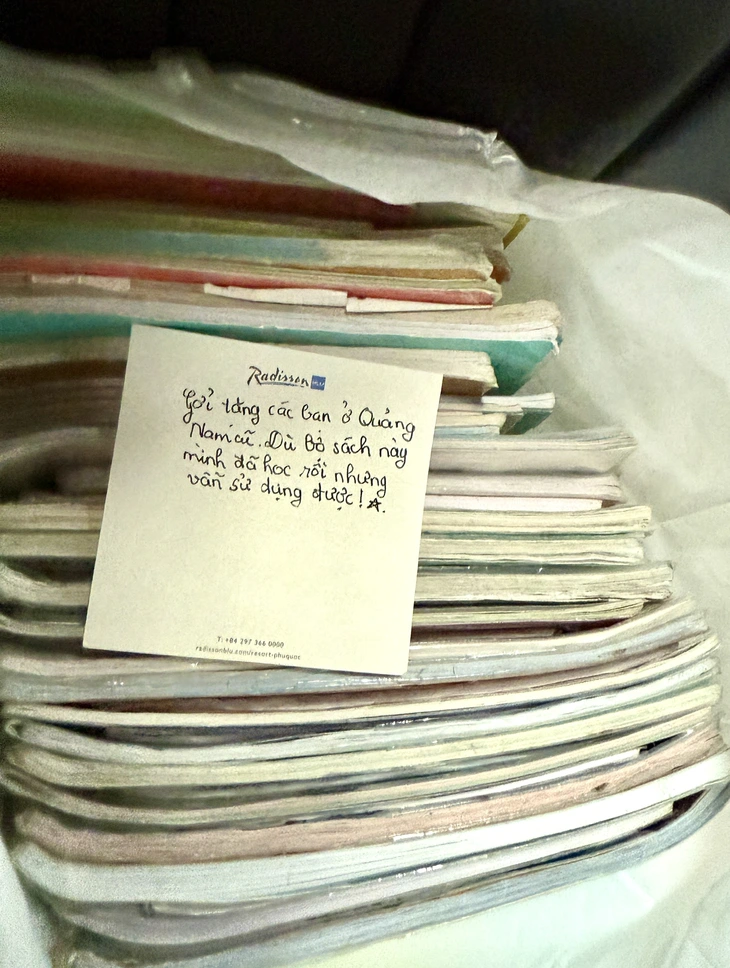 Radisson BLU
Gởi tặng các bạn ở Quảng
Nam ạ. Dù bộ sách này
mình đã học rồi nhưng
vẫn sử dụng được!
T: +84 297 366 0000
radissonblu.com/resort-phuquoc